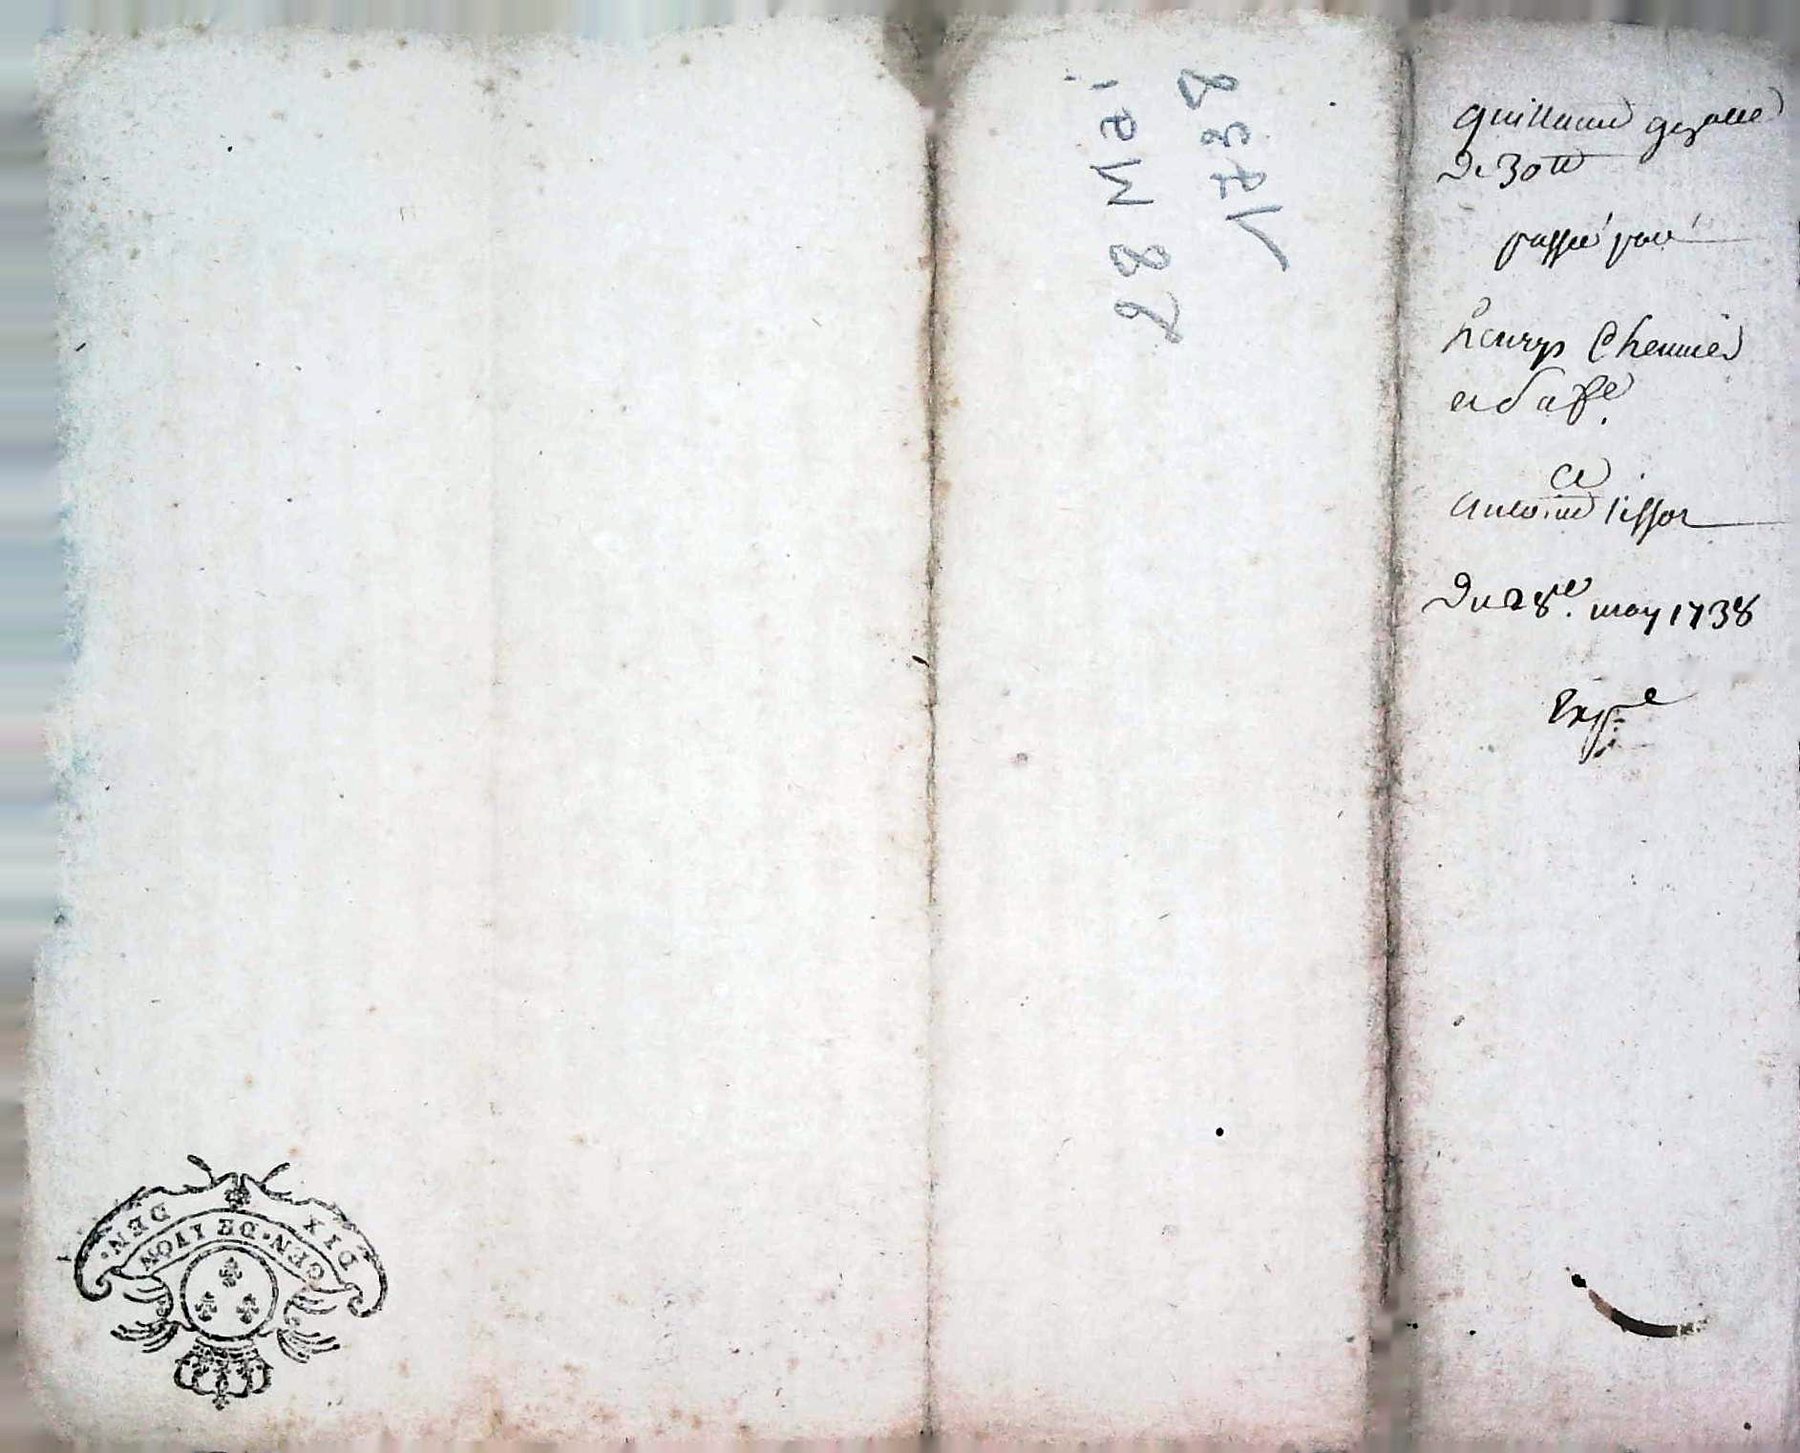 28 Mai
1738
Guillaume
De 30 tt
passée par
henrys Chemier
et sa fe.
a
antoine tissot
Du 28e. may 1738
Expe
DIX DEN.
GEN. DE LYON